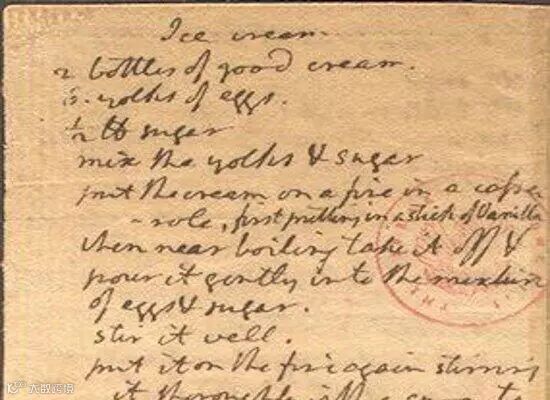 Ice cream.
2 bottles of good cream.
6. yolks of eggs.
1/2 ℔ sugar
mix the yolks & sugar
put the cream on a fire in a casse
- role, first putting in a stick of Vanilla.
when near boiling take it off &
pour it gently into the mixture
of eggs & sugar.
stir it well.
put it on the fire again stirring
it thoroughly with a spoon to
大数跨境